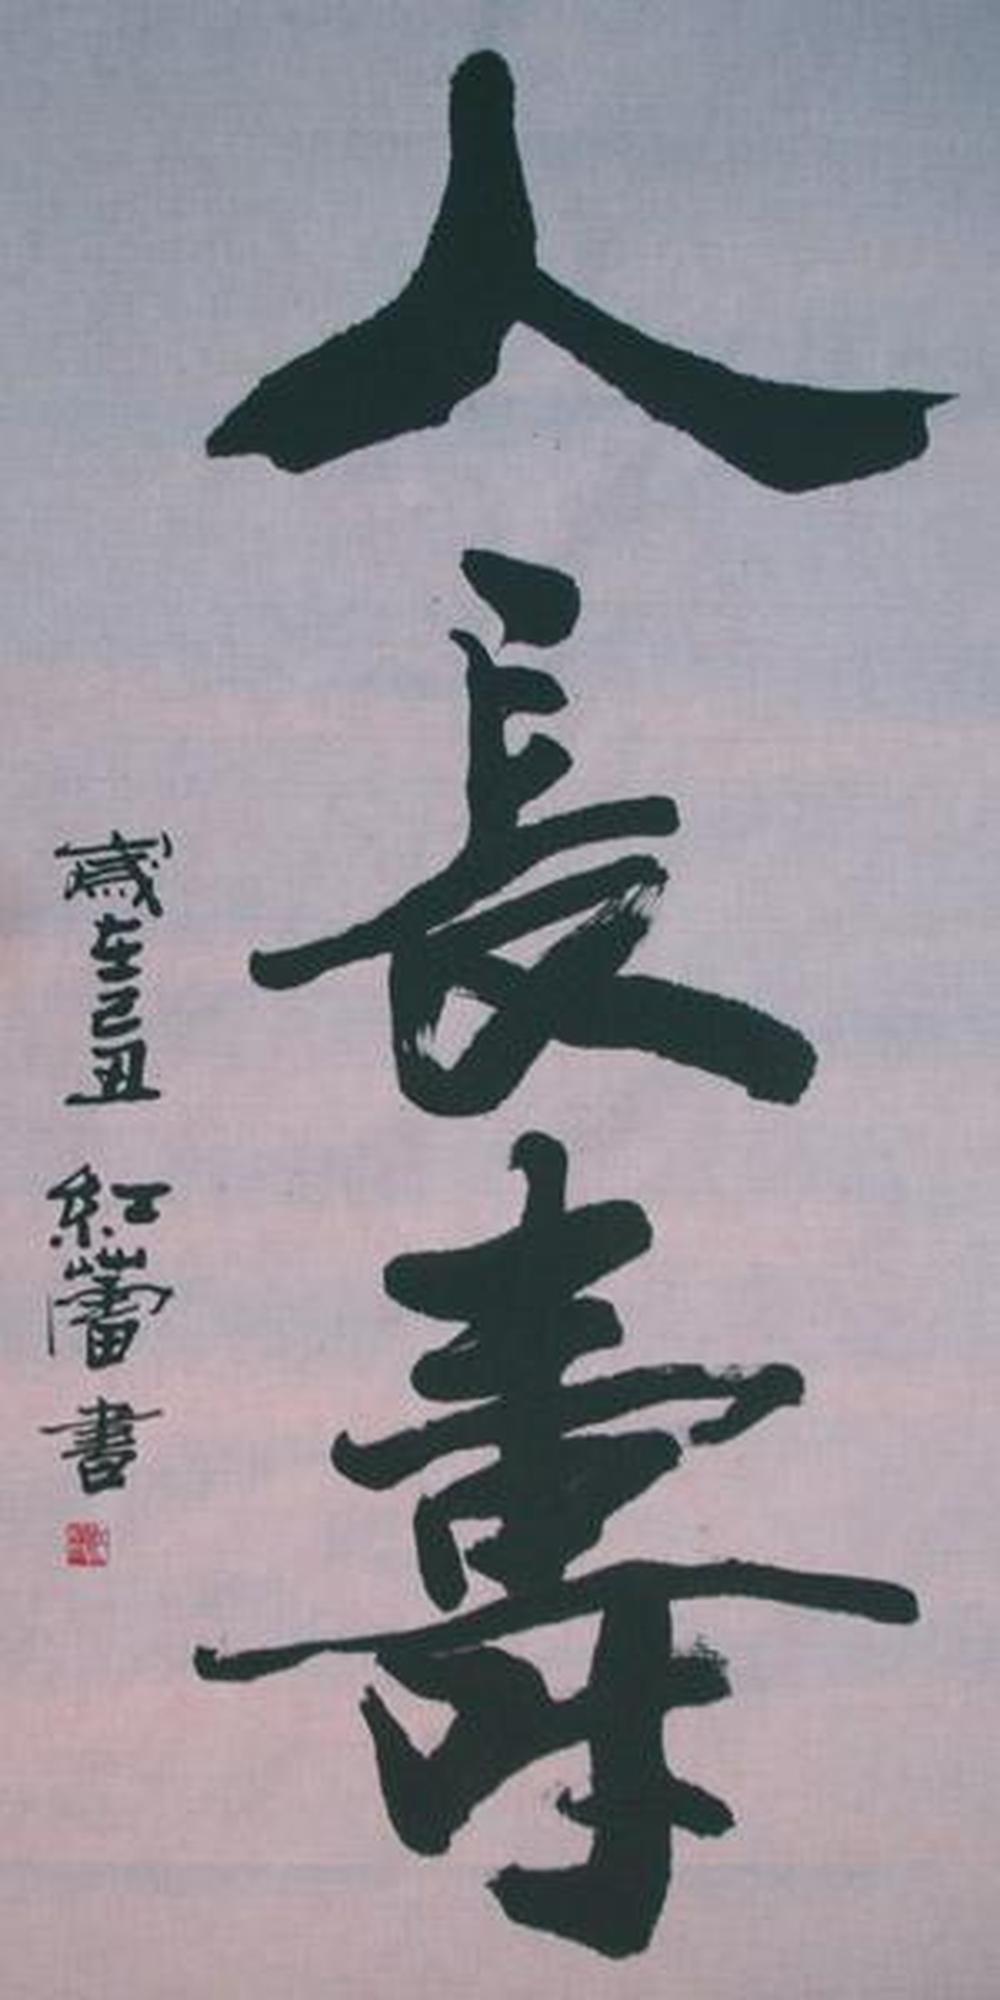 人長壽
歲在己丑 紅蕾書